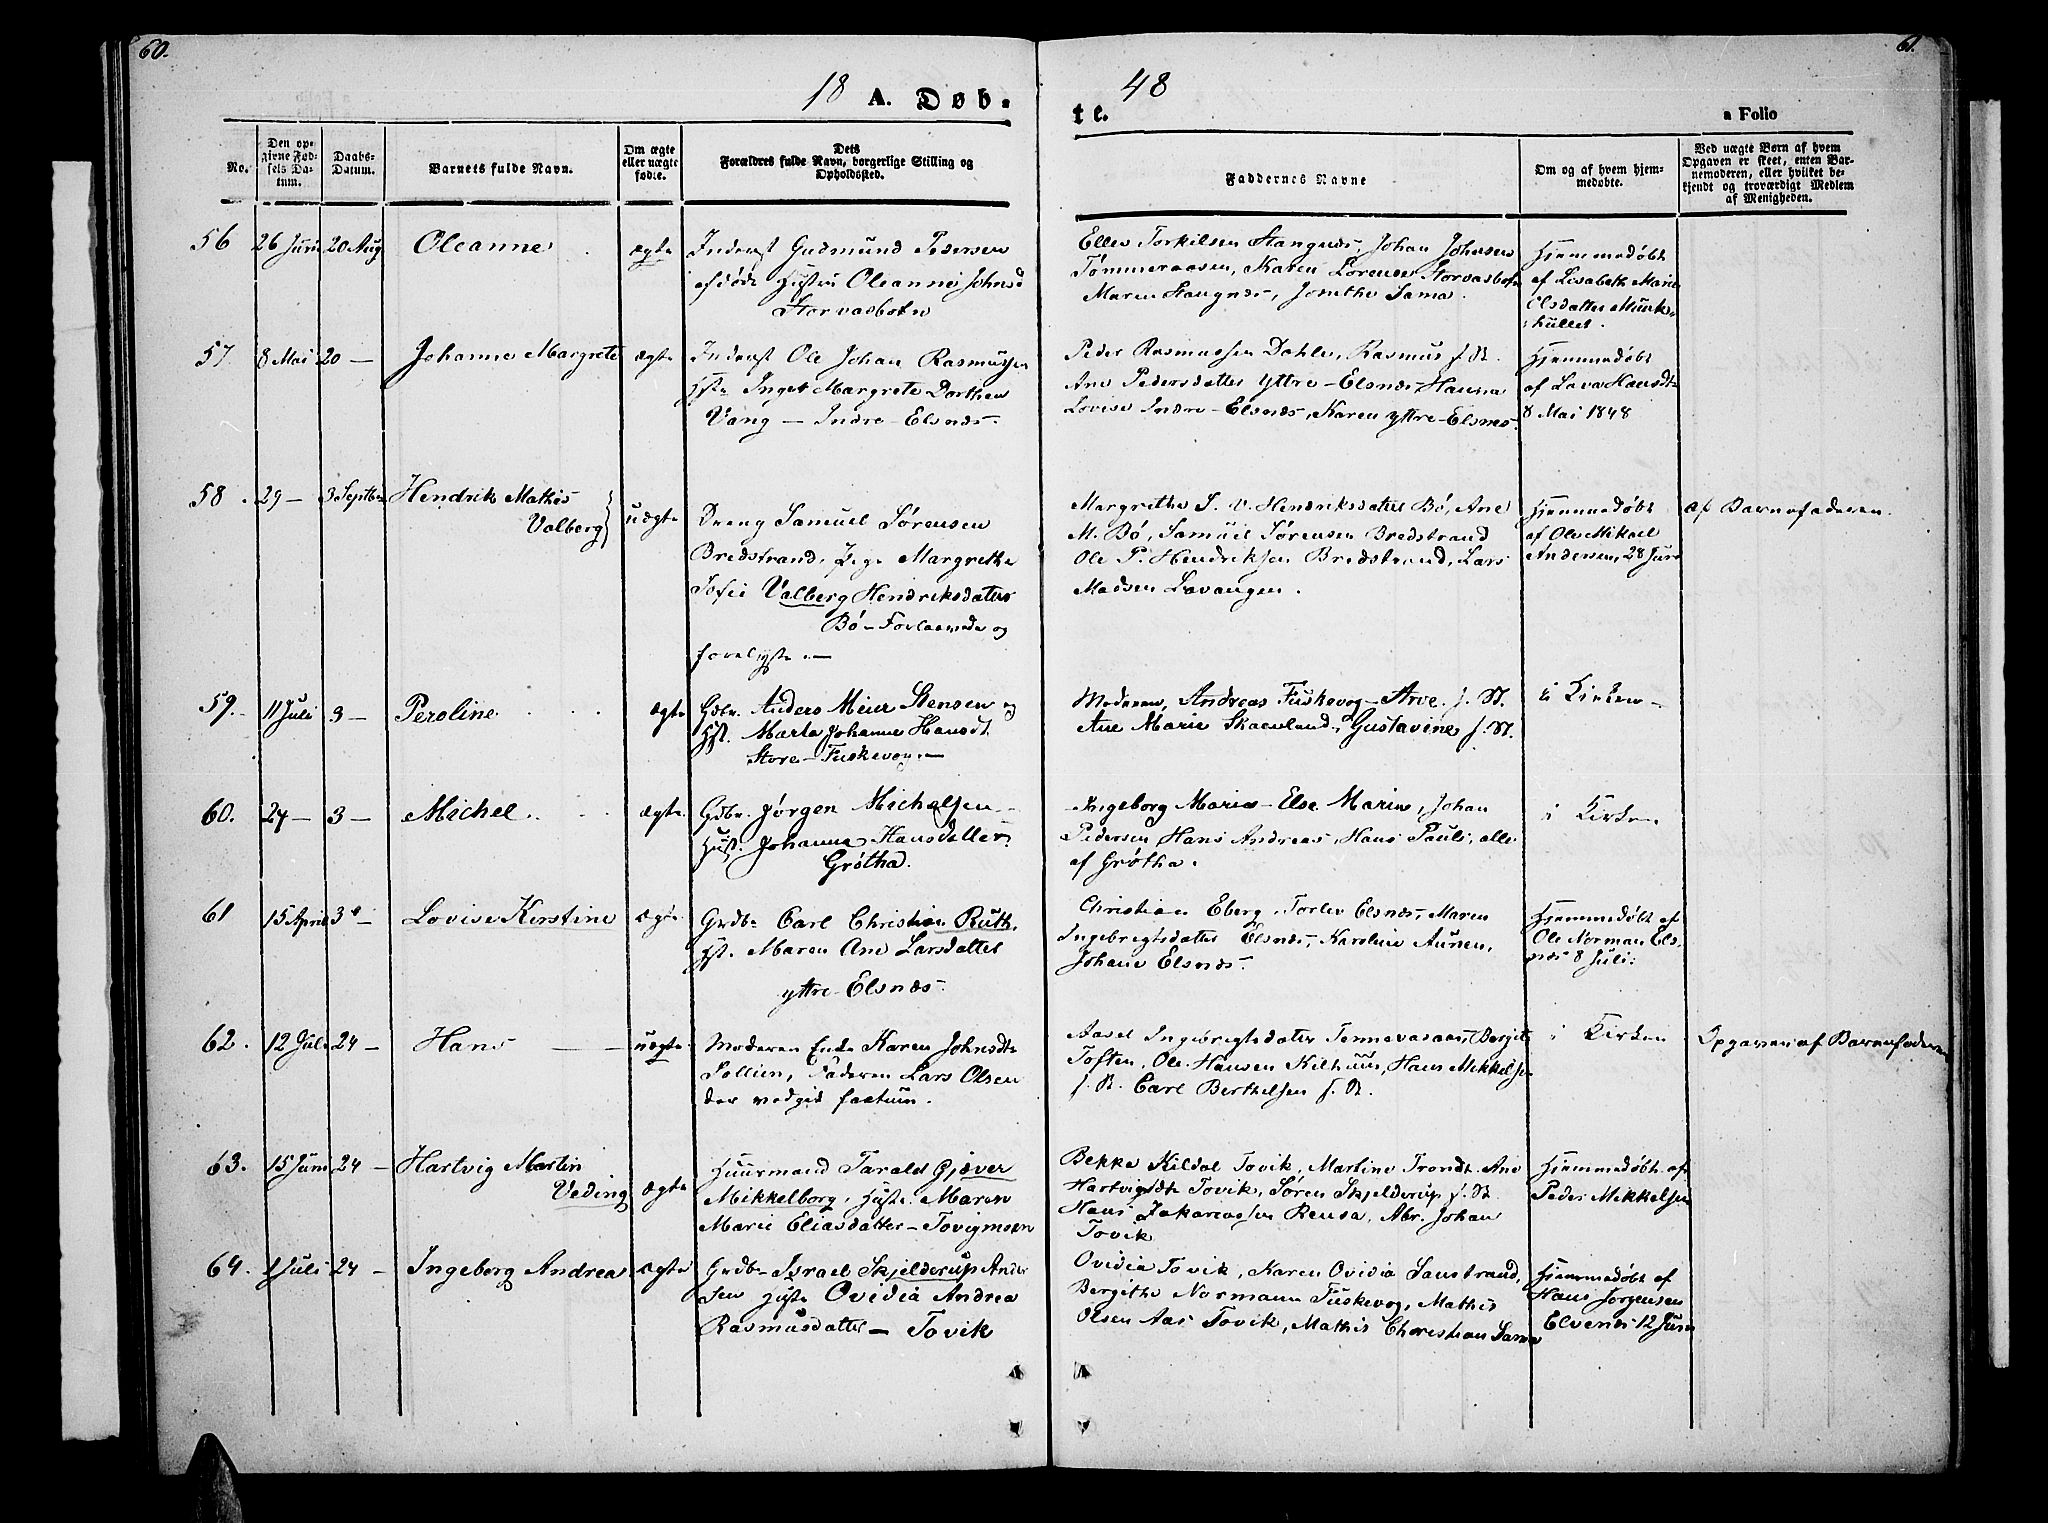 60.
61.
18 A. Døb-
te. 48
a Folio
No.
Den op-
girne Fød-
sels Da-
tum.
Daabs-
Datum.
Barnets fulde Navn.
Om ægte
eller uægte
fødte.
Dets
Forældres fulde Navn, borgerlige Stilling og
Opholdssted.
Faddernes Navne
Om og af hvem hjem-
medøbte.
Ved uægte Børn af hvem
Opgaven er skeet, enten Bar-
nemoderen, eller hvilket be-
kjendt og troværdigt Medlem
af Menigheden.
56 26 Juni 20 Aug Oleanne ægte
Inderst Gudmund Pedersen
afdøde Hustru Oleanne Johnsd
Storvasbotn
Ellev Torkilsen Stangnæs, Johan Johnsen
Tømmeraasen, Karen Lorense Storvasbotn
Maren Stangnæs, Jonethe Sama.
Hjemmedøbt
af Lisabeth Marie
Olsdatter Munke-
hullet.
57. 8 Mai 20 — Johanne Margrete ægte
Inderst Ole Johan Rasmussen
Hst. Inger Margrete Dorthea
Vang — Indre-Elsnæs.
Peder Rasmussen Dahlen, Rasmus f. St.
Ane Pedersdatter yttre-Elsnæs, Hanna
Lovise Indre-Elsnæs, Karen yttre-Elsnæs.
Hjemmedøbt
af Lava Hansdt.
8 Mai 1848
58. 29 — 3 Septbr Hendrik Mathis
Valberg uægte
Dreng Samuel Sørensen
Bredstrand, Pige Margrethe
Sofie Valberg Hendriksdatter
Bø — Forlovede og
forelyste. —
Margrethe S. V. Hendriksdatter Bø, Ane
M. Bø, Samuel Sørensen Bredstrand
Ole P. Hendriksen Bredstrand, Lars
Madsen Lavangen.
Hjemmedøbt
af Ole Mikael
Andersen, 28 Juni
af Barnefaderen.
59. 11 Juli 3 — Peroline ægte
Gdbr. Anders Meier Stensen og
Hst. Marta Johanne Hansdt
Store-Fuskevog. —
Moderen, Andreas Fuskevog — Arve f. St.
Ane Marie Skaenland, Gustavine f. St.
i Kirken —
60. 24 — 3 — Michel ægte.
Gdbr. Jørgen Michelsen
Hust. Johanna Hansdatter
Grøtha.
Ingeborg Marie — Else Marie, Johan
Pedersen, Hans Andreas, Hans Pauli, alle
af Grøtha.
i Kirken
61 15 April 3 — Lovise Kirstine ægte
Grdbr. Carl Christian Ruth,
Hst. Maren Ane Larsdatter
yttre-Elsnæs.
Christian Eberg, Torlev Elsnæs, Maren
Ingebrigtsdatter Elsnæs, Karoline Aunen,
Johane Elsnæs.
Hjemmedøbt af
Ole Norman Els-
næs 8 Juli.
62. 12 Juli 24 — Hans uægte
Moderen Enke Karen Johnsdt.
Sollien, Faderen Lars Olsen
der vedgik factum.
Aasel Ingebrigtsdatter Tennevasaas, Bergit
Toften, Ole Hansen Kilhuus, Hans Mikkelsen
f. St. Carl Berthelsen f. St.
i Kirken
Opgaven af Barnefaderen
63. 15 Juni 24 — Hartvig Martin
Veding ægte
Huurmand Tarald Gjæver
Mikkelborg, Hust. Maren
Marie Eliasdatter — Tovigmoen
Bekke Kildal Tovik, Martine Trondt. Ane
Hartvigsdt. Tovik, Søren Skjelderup f. St.
Hans Zakariassen Rensa, Abr. Johan
Tovik
Hjemmedøbt af
Peder Mikkelsen
64. 1 Juli 24 — Ingeborg Andrea ægte
Grdbr. Israel Skjelderup Ander
sen Hust. Ovidia Andrea
Rasmusdatter — Tovik
Ovidia Tovik, Karen Ovidia Sanstrand,
Bergithe Normann Fuskevog, Mathis
Olsen Aas Tovik, Mathis Christian Sama
Hjemmedøbt af
Hans Jørgensen
Elvenes 12 Juni